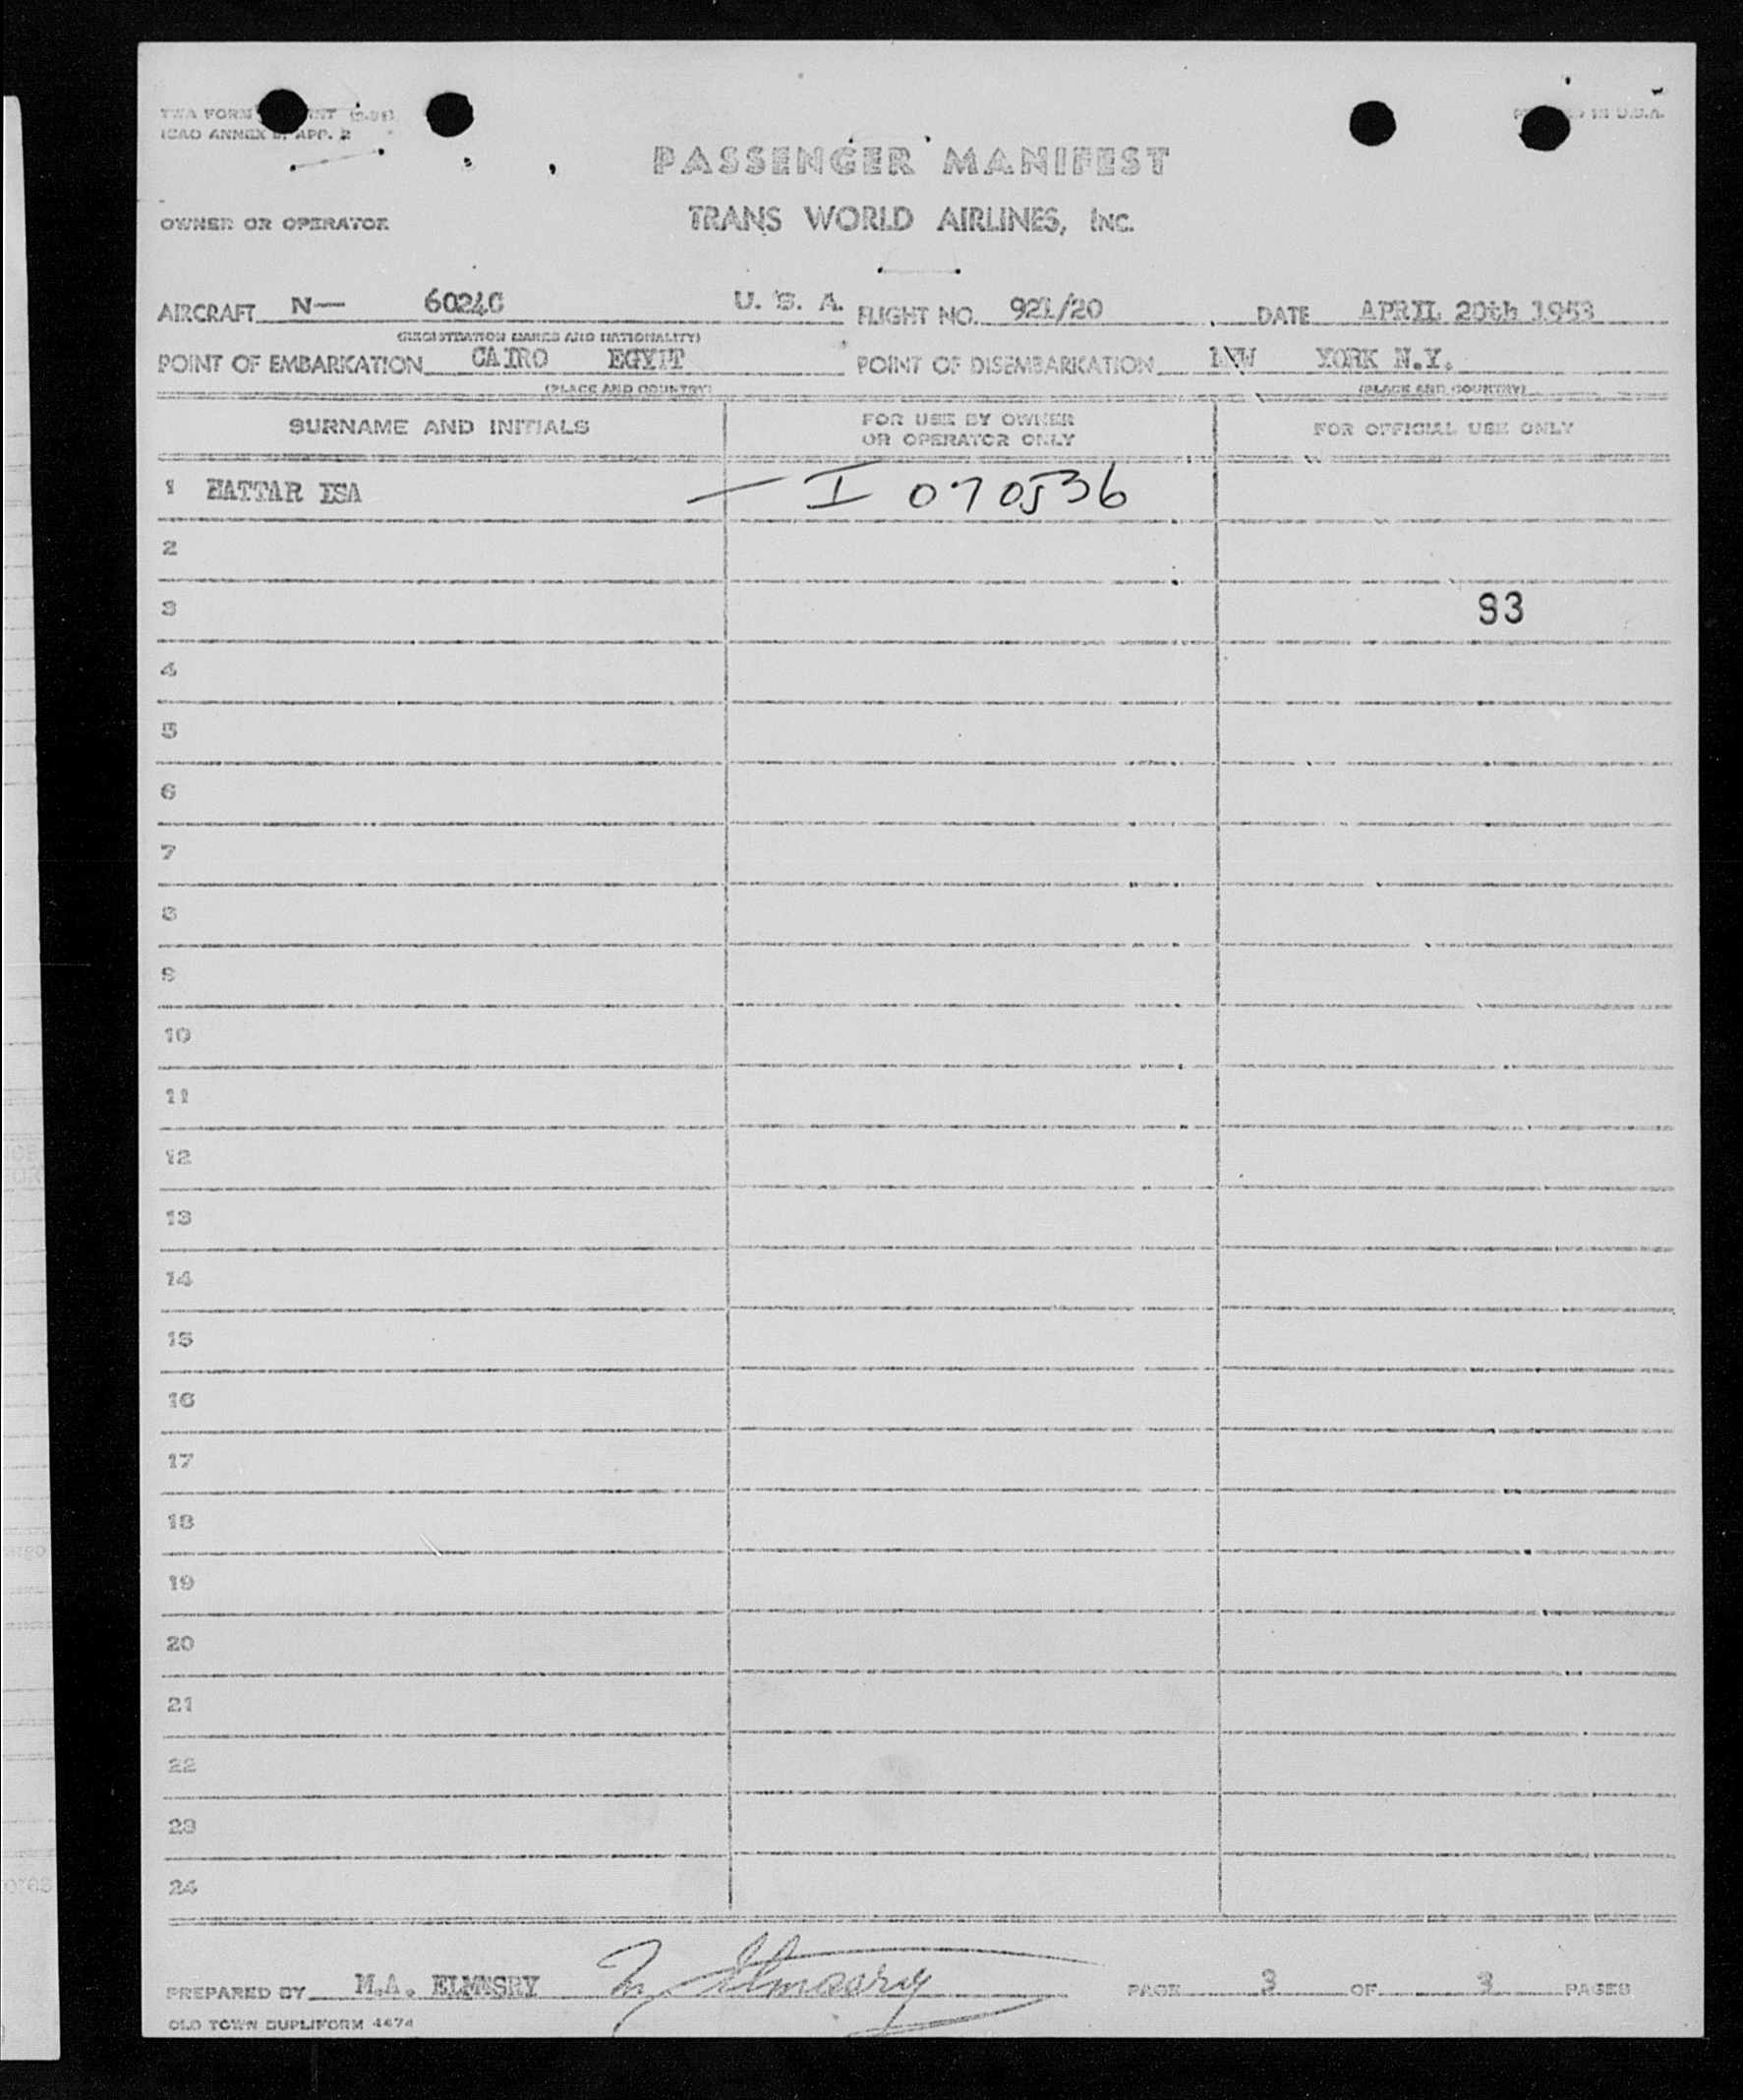 TWA FORM
ICAO ANNEX 9, APP. 2
IN U.S.A.
PASSENGER MANIFEST
OWNER OR OPERATOR TRANS WORLD AIRLINES, INC.
AIRCRAFT N— 6024C U. S. A. FLIGHT NO. 921/20 DATE APRIL 20th 1953
(REGISTRATION MARKS AND NATIONALITY)
POINT OF EMBARKATION CAIRO EGYPT POINT OF DISEMBARKATION NEW YORK N.Y.
(PLACE AND COUNTRY) (PLACE AND COUNTRY)
SURNAME AND INITIALS FOR USE BY OWNER OR OPERATOR ONLY FOR OFFICIAL USE ONLY
1 HATTAR ISA — I 070536
2
3 93
4
5
6
7
8
9
10
11
12
13
14
15
16
17
18
19
20
21
22
23
24
PREPARED BY M.A. ELMESRY M. Elmasry PAGE 3 OF 3 PAGES
OLD TOWN DUPLIFORM 4474